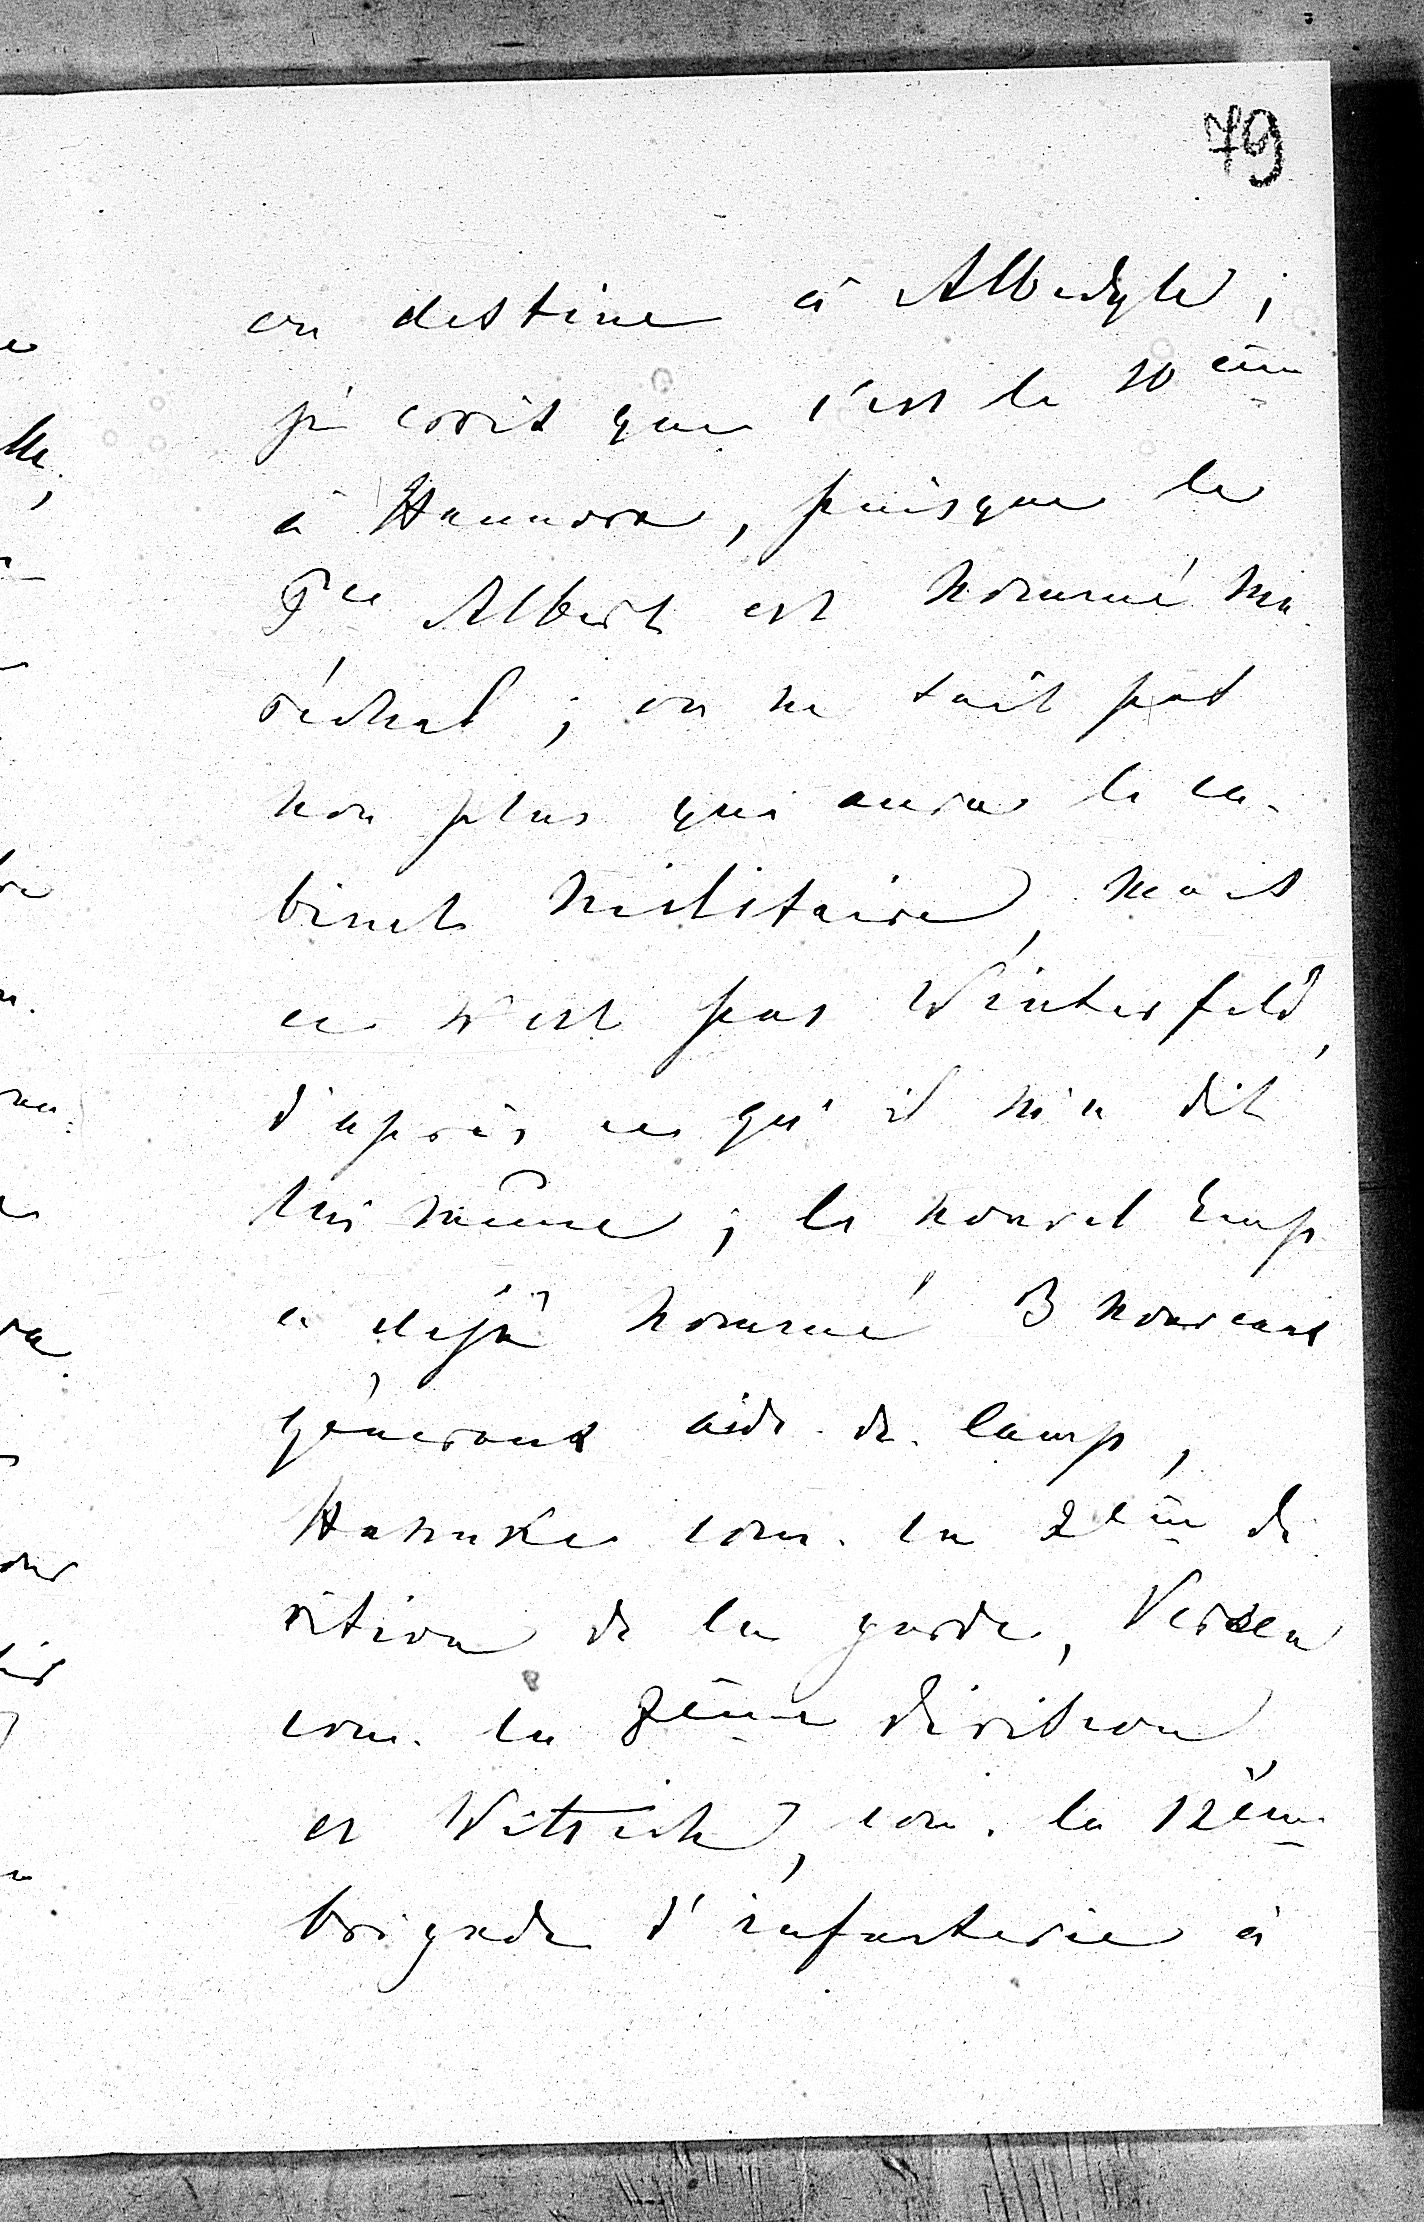 79
on destine à Albedyle ;
je crois que c'est le 10 ème
à Hannovre, puisque le
Pce Albert est nommé ma-
réchal ; on ne sait pas
non plus qui aura le ca-
binet militaire, mais
ce n'est pas Winterfeld,
d'après ce qu'il m'a dit
lui même ; le nouvel Emp
a déjà nommé 3 nouveaux
généraux aide-de-camp,
Hahnke com. la 2ème di
vision de la garde, Versen
com. la 8ème division,
et Wittich, com. la 12ème
brigade d'infanterie à